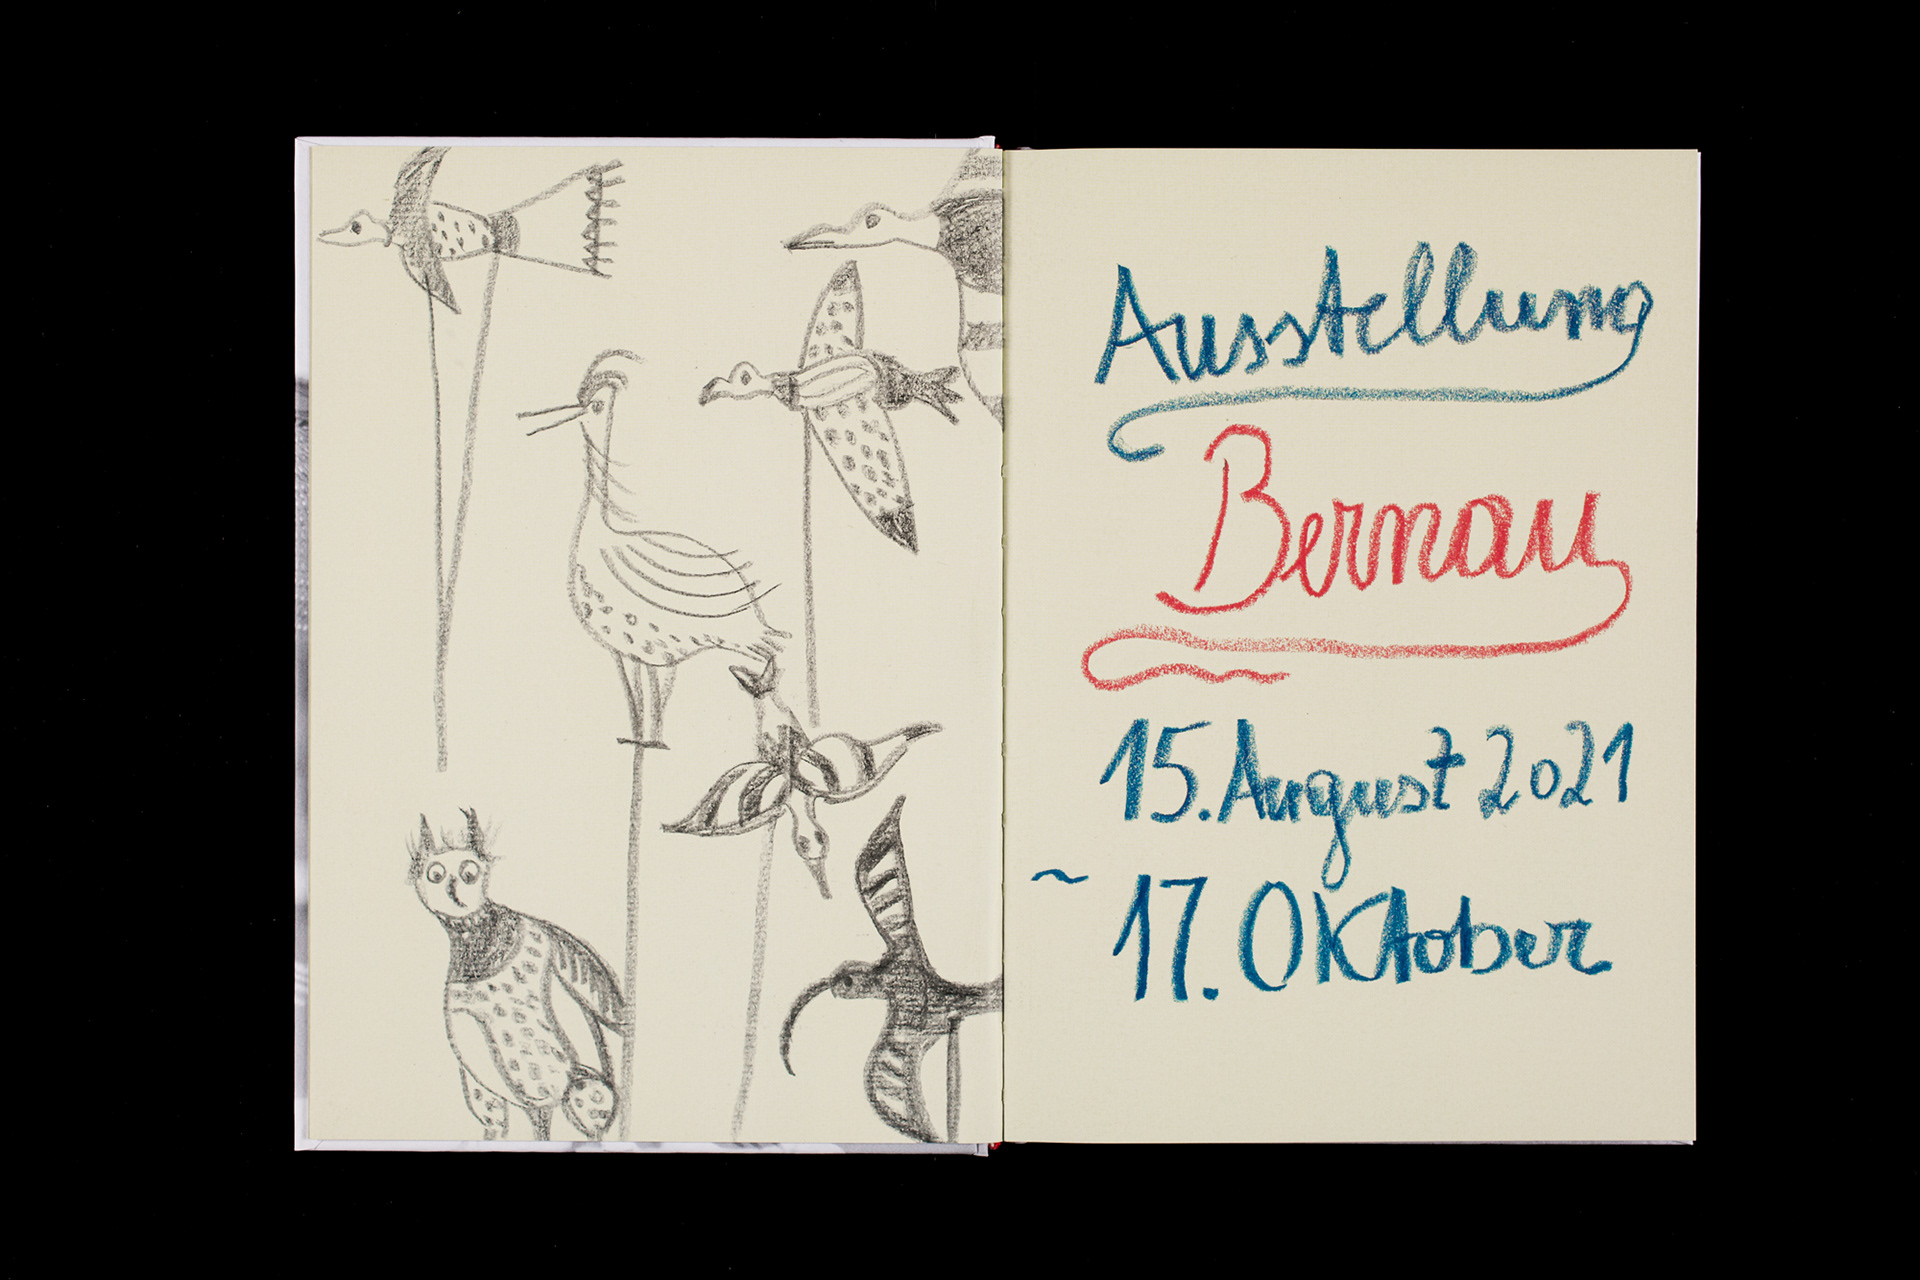 Ausstellung
Bernau
15. August 2021
~ 17. Oktober